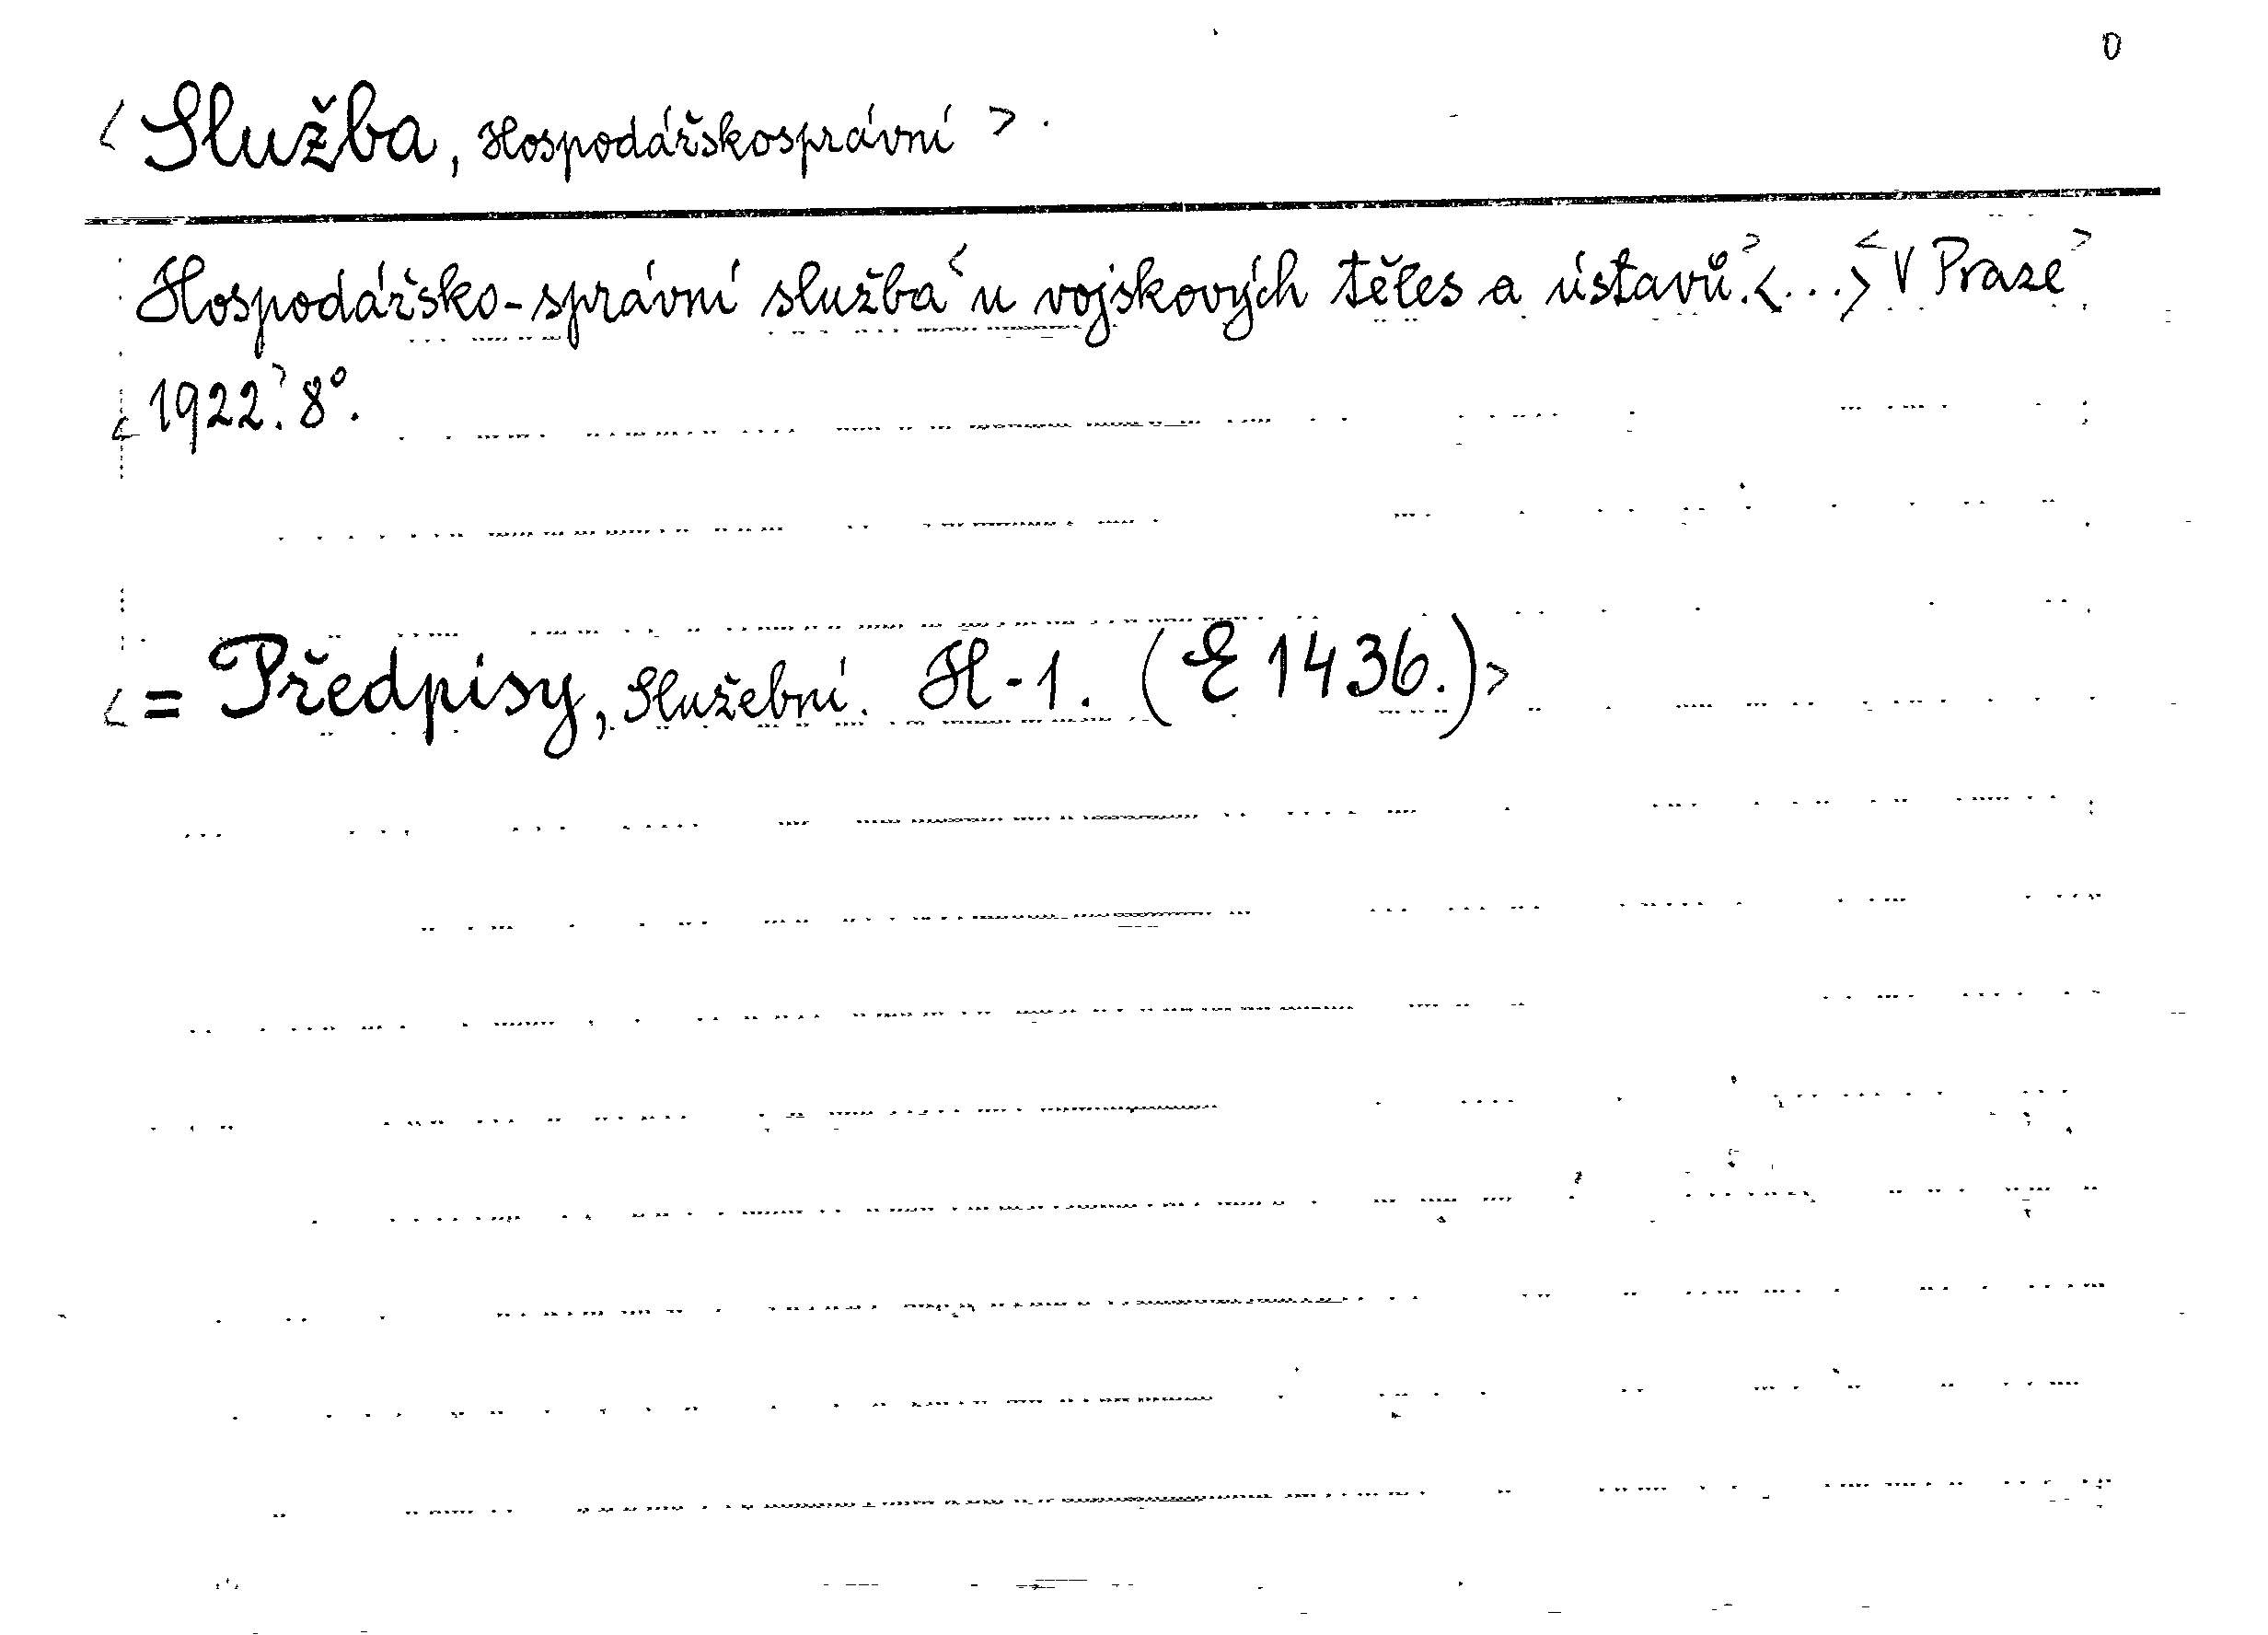 0
<Služba, Hospodářskosprávní>.
Hospodářsko-správní služba <u vojskových těles a ústavů>. <...> <V Praze>
<1922>. 8°.
<= Předpisy, Služební. H-1. (E 1436.)>